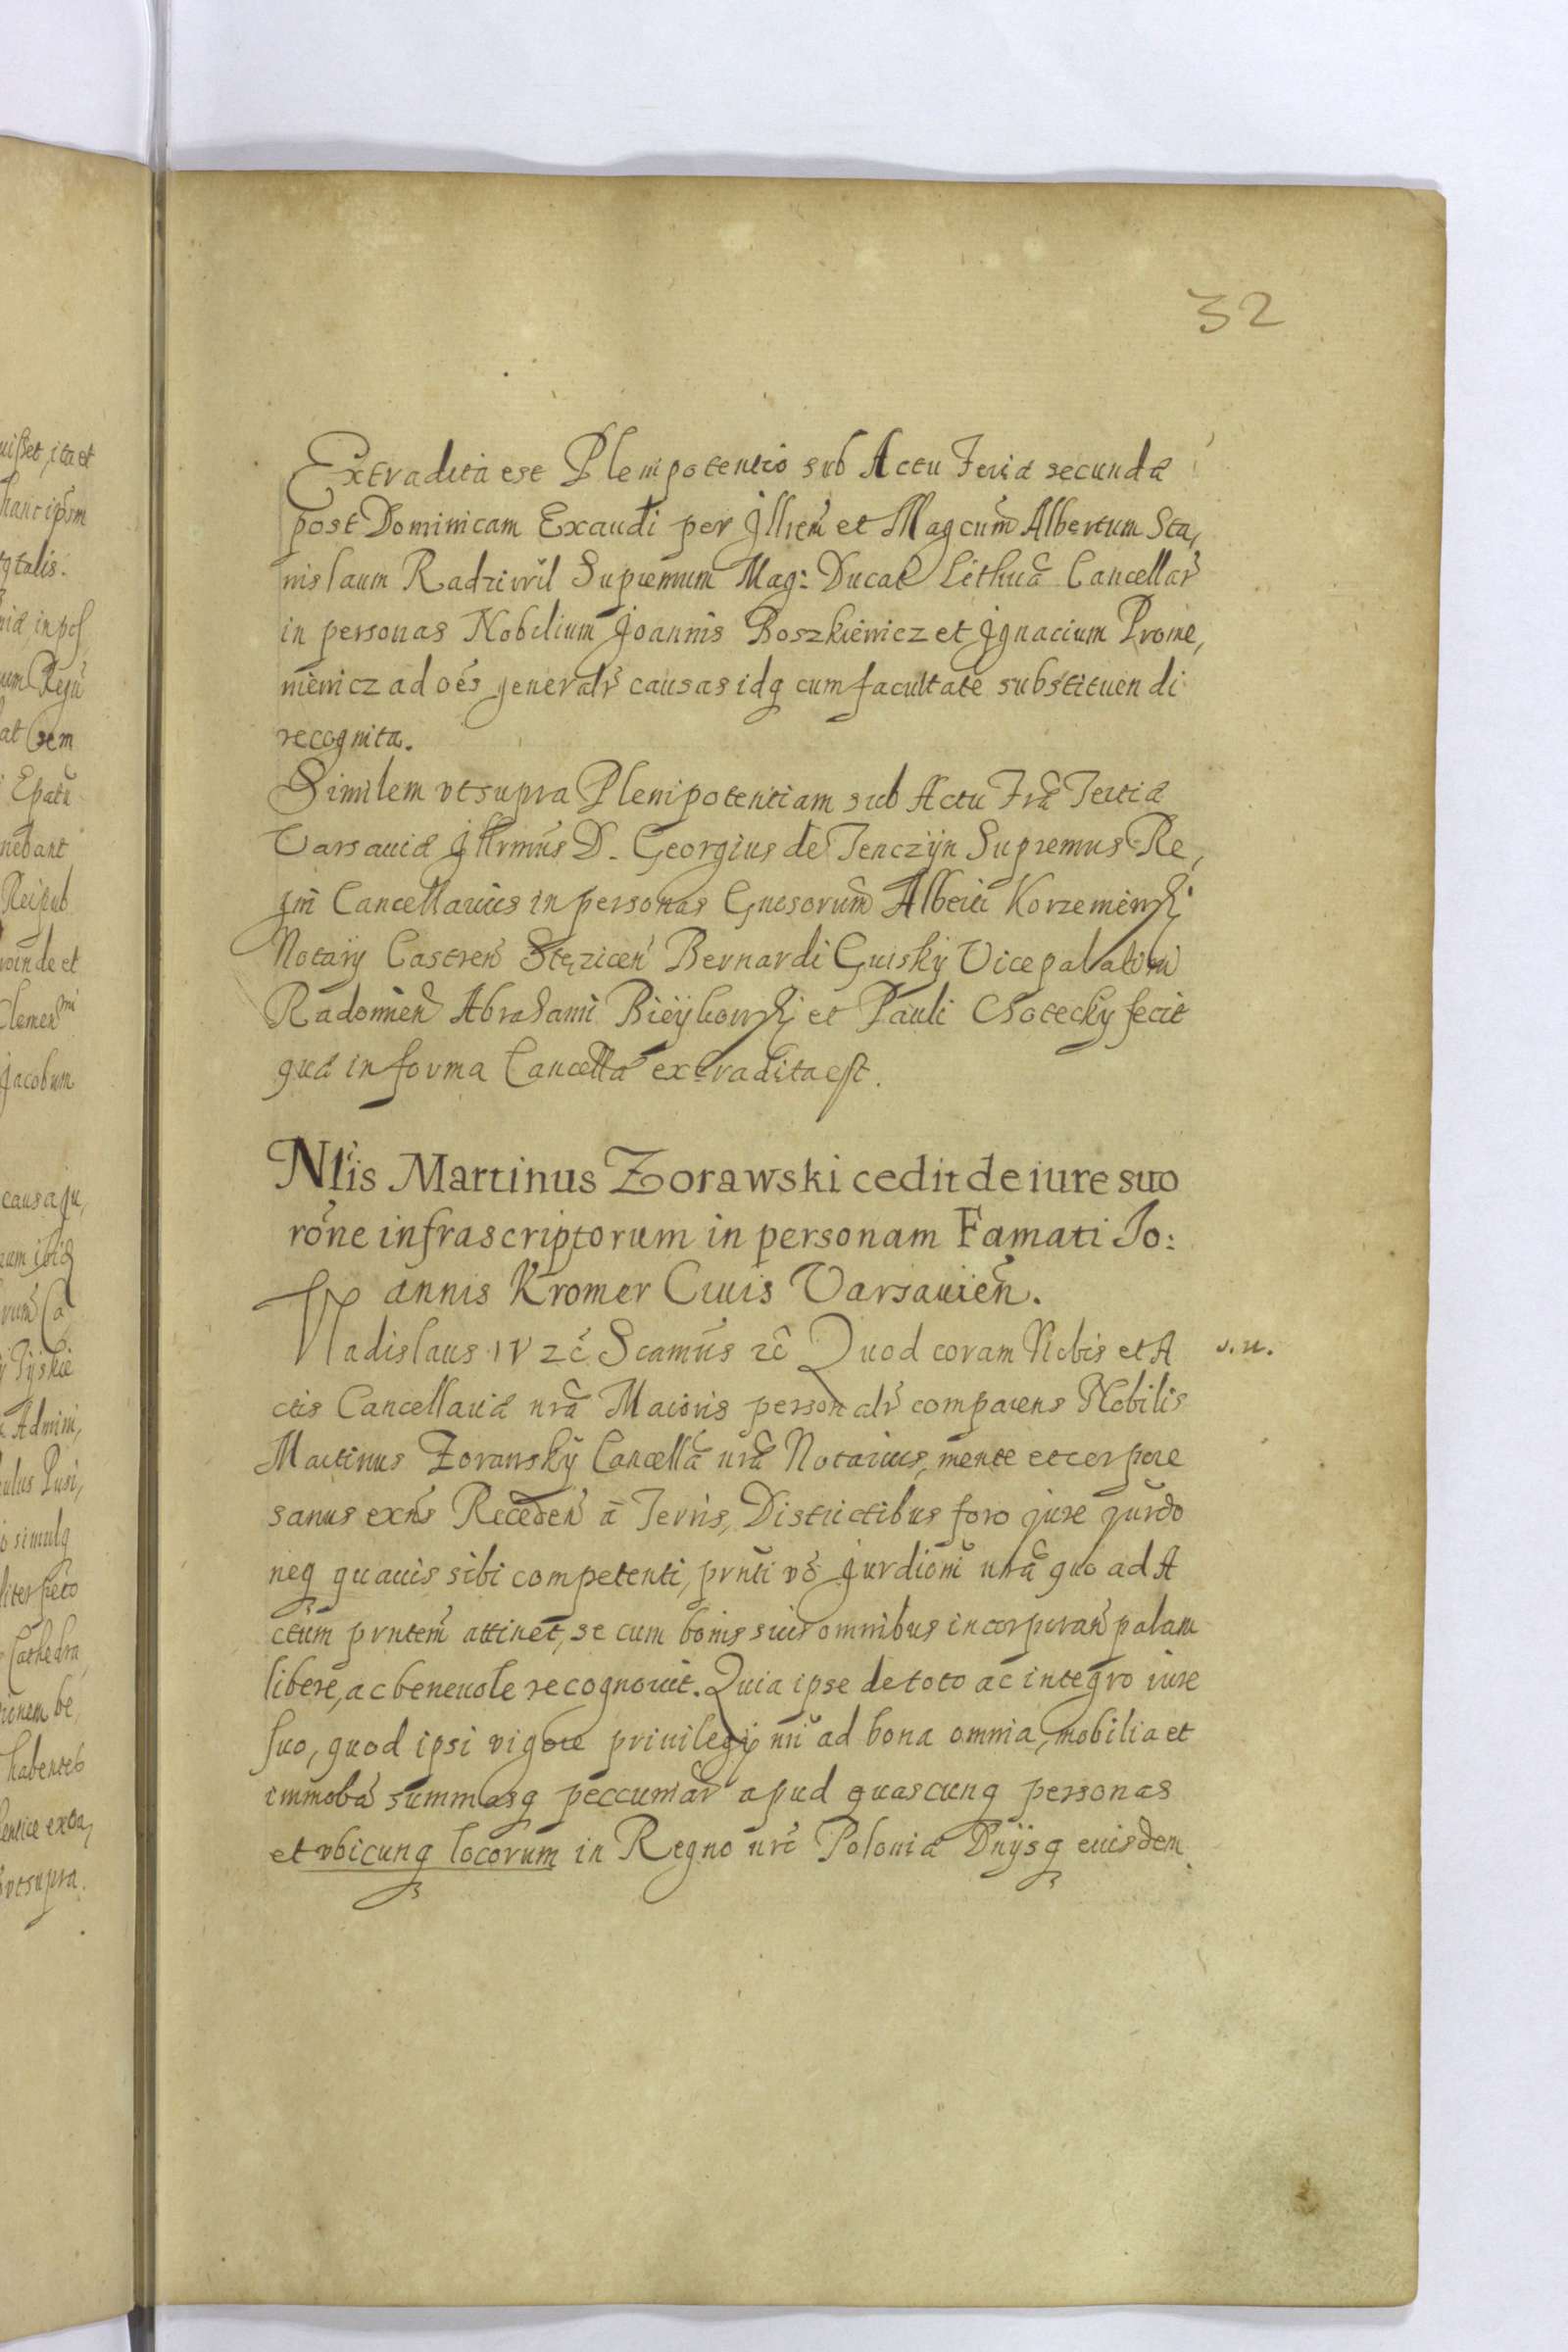 32
Extradita est Plenipotentio sub Actu Feria secunda
post Dominicam Exaudi per Jllrem̃ et Magcum̃ Albertum Sta,
nislaum Radziwil Supremum Mag: Ducat Lithuã Cancellar̃
in personas Nobilium Joannis Boszkiewicz et Jgnacium Prome,
niewicz ad oẽs generalr̃ causas idq cum facultate substituendi
recognita.
Similem vt supra Plenipotentiam sub Actu Frã Tertia
Varsauiæ Jllrmũs D. Georgius de Tenczÿn Supremus Re,
gni Cancellarius in personas Gnosorum̃ Alberti Korzeniewski
Notarÿ Castreñ Stęziceñ Bernardi Guiskÿ Vicepalatini
Radomieñ Abrahami Bieÿkowski et Pauli Chotecky fecit
quæ in forma Cancella extradita est.
Nlĩs Martinus Zorawski cedit de iure suo
rõne infrascriptorum in personam Famati Jo:
annis Kromer Ciuis Varsauieñ.
Wladislaus IV zc̃ Scamũs zc̃ Quod coram Nobis et A
s. n.
ctis Cancellariæ nrã Maioris personalr̃ comparens Nobilis
Martinus Zorawskÿ Cancellã nrã Notarius, mente et corpore
sanus exñs Recedeñ ã Terris, Districtibus foro jure jurdo
neq quauis sibi competenti, prnti võ Jurdiom̃ nrã quo ad A
ctum prntem̃ attinet, se cum bonis suis omnibus incorporañ palam
libere, ac beneuole recognouit. Quia ipse de toto ac integro iure
suo, quod ipsi vigore priuilegÿ nri ad bona omnia, mobilia et
immobã summasq peccuniar̃ apud quascunq personas
et vbicunq locorum in Regno nrõ Poloniæ Dnÿsq eiusdem